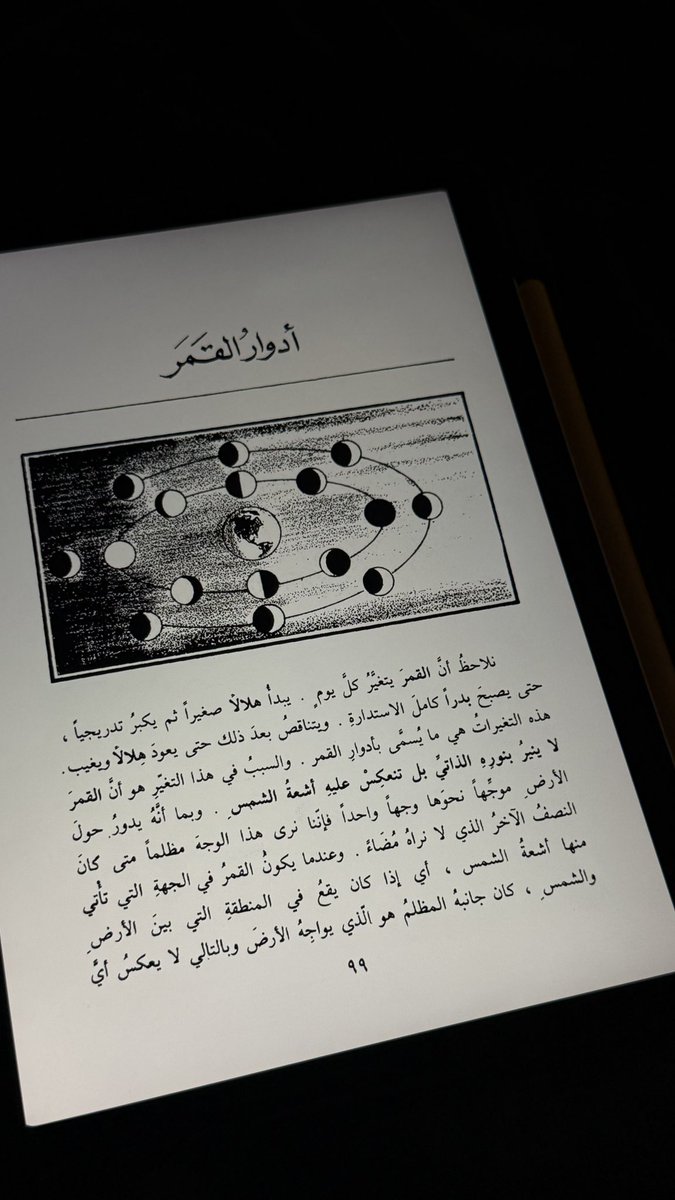 أدوارُ القَمَرَ
نلاحظُ أنَّ القمرَ يتغيَّرُ كلَّ يومٍ . يبدأُ هلالاً صغيراً ثم يكبرُ تدريجياً ،
حتى يصبحَ بدراً كاملَ الاستدارةِ . ويتناقصُ بعدَ ذلك حتى يعودَ هِلالاً ويغيب.
هذه التغيراتُ هي ما يُسمَّى بأدوارِ القمر . والسببُ في هذا التغيّرِ هو أنَّ القمرَ
لا ينيرُ بنورِهِ الذاتيِّ بل تنعكِسْ عليهِ أشعةُ الشمسِ . وبما أنَّهُ يدورُ حولَ
الأرضِ موجِّهاً نحوَها وجهاً واحداً فإنّنا نرى هذا الوجهَ مظلماً متى كانَ
النصفُ الآخرُ الذي لا نراهُ مُضَاءً . وعندما يكونُ القمرُ في الجهةِ التي تأتي
منها أشعةُ الشمس ، أي إذا كان يقعُ في المنطقةِ التي بينَ الأرضِ
والشمسِ ، كان جانبهُ المظلمُ هو الّذي يواجِهُ الأرضَ وبالتالي لا يعكسُ أيَّ
٩٩